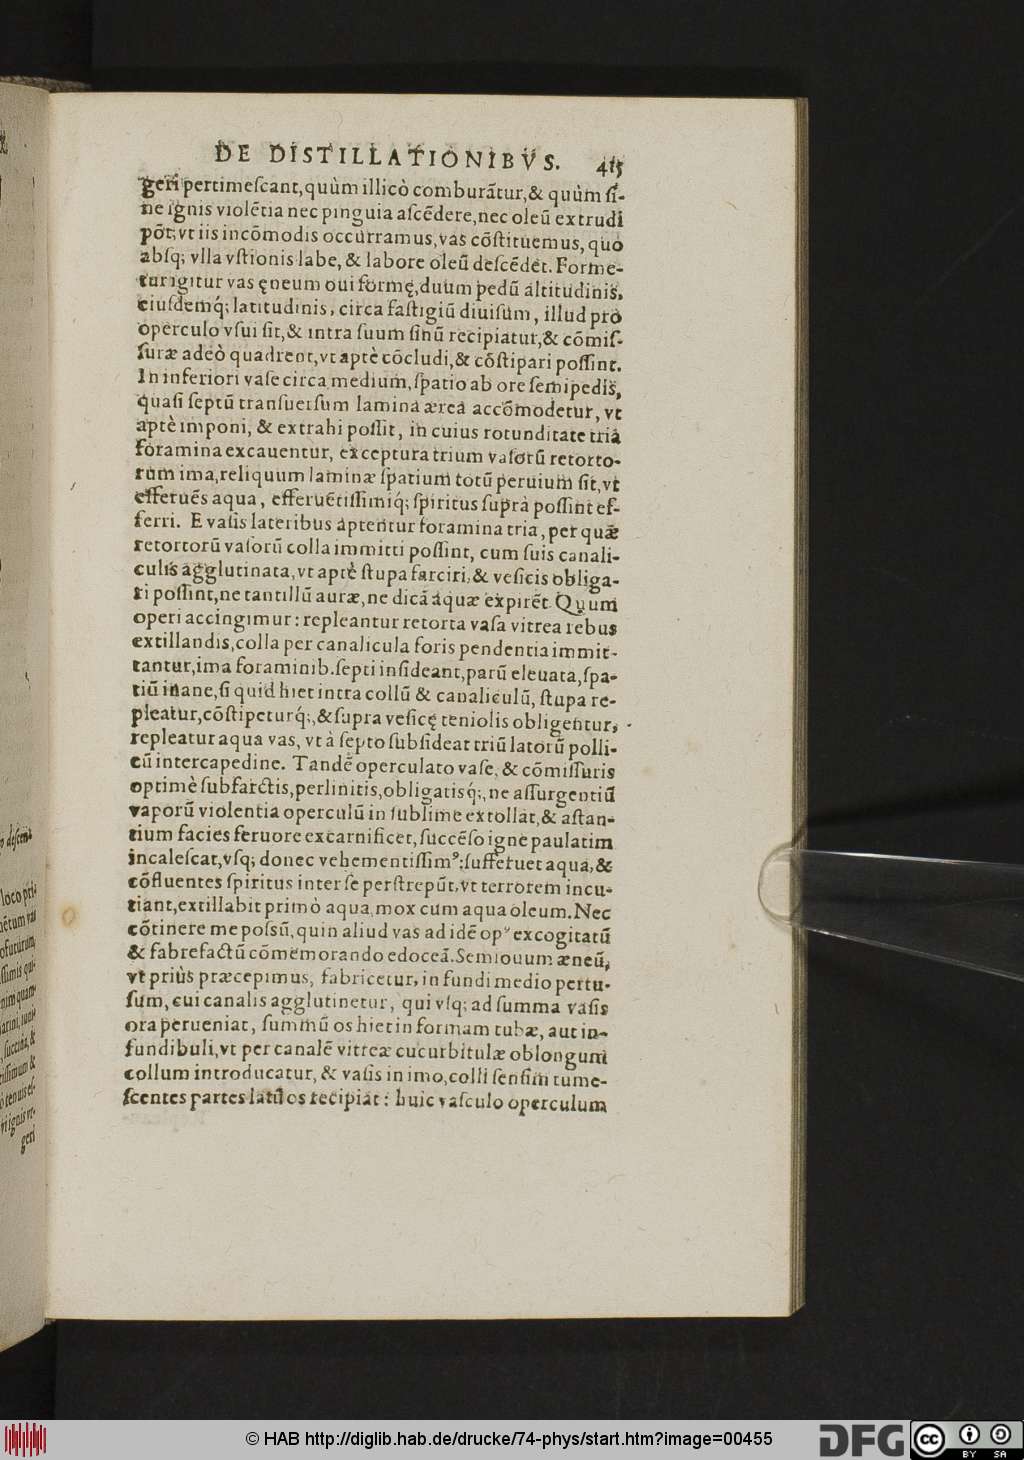 DE DISTILLATIONIBVS. 415
geri pertimeſcant,quùm illicò comburãtur,& quùm ſi-
ne ignis violẽtia nec pinguia aſcẽdere,nec oleũ extrudi
põt: vt iis incõmodis occurramus,vas cõſtituemus, quo
abſq; vlla vſtionis labe, & labore oleũ deſcẽdet. Forme-
tur igitur vas ęneum oui formę,duum pedũ altitudinis,
eiuſdemq́; latitudinis, circa faſtigiũ diuiſum, illud pro
operculo vſui ſit,& intra ſuum ſinũ recipiatur,& cõmiſ-
ſuræ adeò quadrent,vt aptè cõcludi,& cõſtipari poſſint.
In inferiori vaſe circa medium, ſpatio ab ore ſemipedis,
quaſi ſeptũ tranſuerſum lamina ærea accõmodetur, vt
aptè imponi, & extrahi poſſit, in cuius rotunditate tria
foramina excauentur, exceptura trium vaſorũ retorto-
rum ima,reliquum laminæ ſpatium totũ peruium ſit,vt
efferuẽs aqua, efferuẽtiſſimiq́; ſpiritus ſuprà poſſint ef-
ferri. E vaſis lateribus aptentur foramina tria, per quæ
retortorũ vaſorũ colla immitti poſſint, cum ſuis canali-
culis agglutinata,vt aptè ſtupa farciri,& veſicis obliga-
ri poſſint,ne tantillũ auræ,ne dicã aquæ expirẽt. Quum
operi accingimur: repleantur retorta vaſa vitrea rebus
extillandis,colla per canalicula foris pendentia immit-
tantur,ima foraminib. ſepti inſideant,parũ eleuata, ſpa-
tiũ inane,ſi quid hiet intra collũ & canaliculũ, ſtupa re-
pleatur,cõſtipeturq́;,& ſupra veſicę teniolis obligentur,
repleatur aqua vas, vt à ſepto ſubſideat triũ latorũ polli-
cũ intercapedine. Tandẽ operculato vaſe, & cõmiſſuris
optimè ſubfarctis,perlinitis,obligatisq́;,ne aſſurgentiũ
vaporũ violentia operculũ in ſublime extollat,& aſtan-
tium facies feruore excarnificet, ſuccẽſo igne paulatim
incaleſcat,vſq; donec vehementiſſimꝰ: ſufferuet aqua,&
cõfluentes ſpiritus inter ſe perſtrepũt,vt terrorem incu-
tiant,extillabit primò aqua, mox cum aqua oleum. Nec
cõtinere me poſsũ,quin aliud vas ad idẽ opꝰ excogitatũ
& fabrefactũ cõmemorando edoceã. Semiouum æneũ,
vt priùs præcepimus, fabricetur, in fundi medio pertu-
ſum, cui canalis agglutinetur, qui vſq; ad ſumma vaſis
ora perueniat, ſummũ os hiet in formam tubæ, aut in-
fundibuli,vt per canalẽ vitreæ cucurbitulæ oblongum
collum introducatur, & vaſis in imo,colli ſenſim tume-
ſcentes partes latũ os recipiat: huic vaſculo operculum
geri
© HAB http://diglib.hab.de/drucke/74-phys/start.htm?image=00455
DFG
cc BY SA